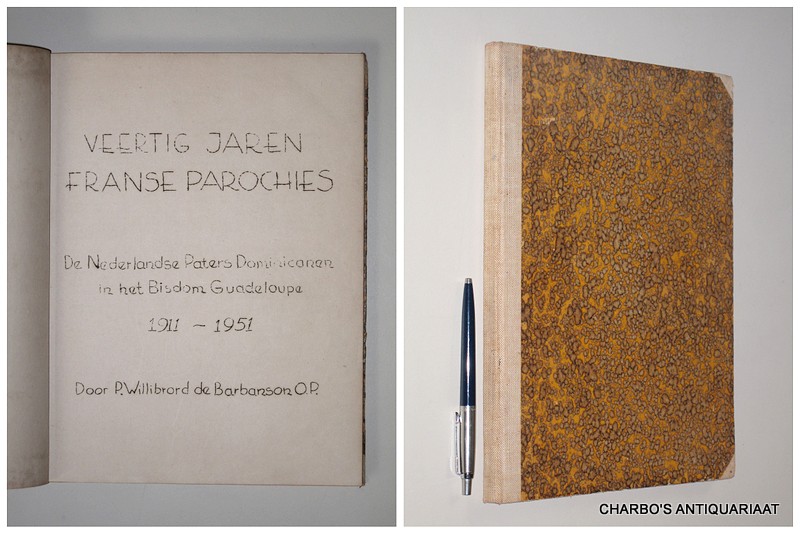 VEERTIG JAREN
FRANSE PAROCHIES
De Nederlandse Paters Dominicanen
in het Bisdom Guadeloupe
1911 - 1951
Door P. Willibrord de Barbanson O.P.
CHARBO'S ANTIQUARIAAT